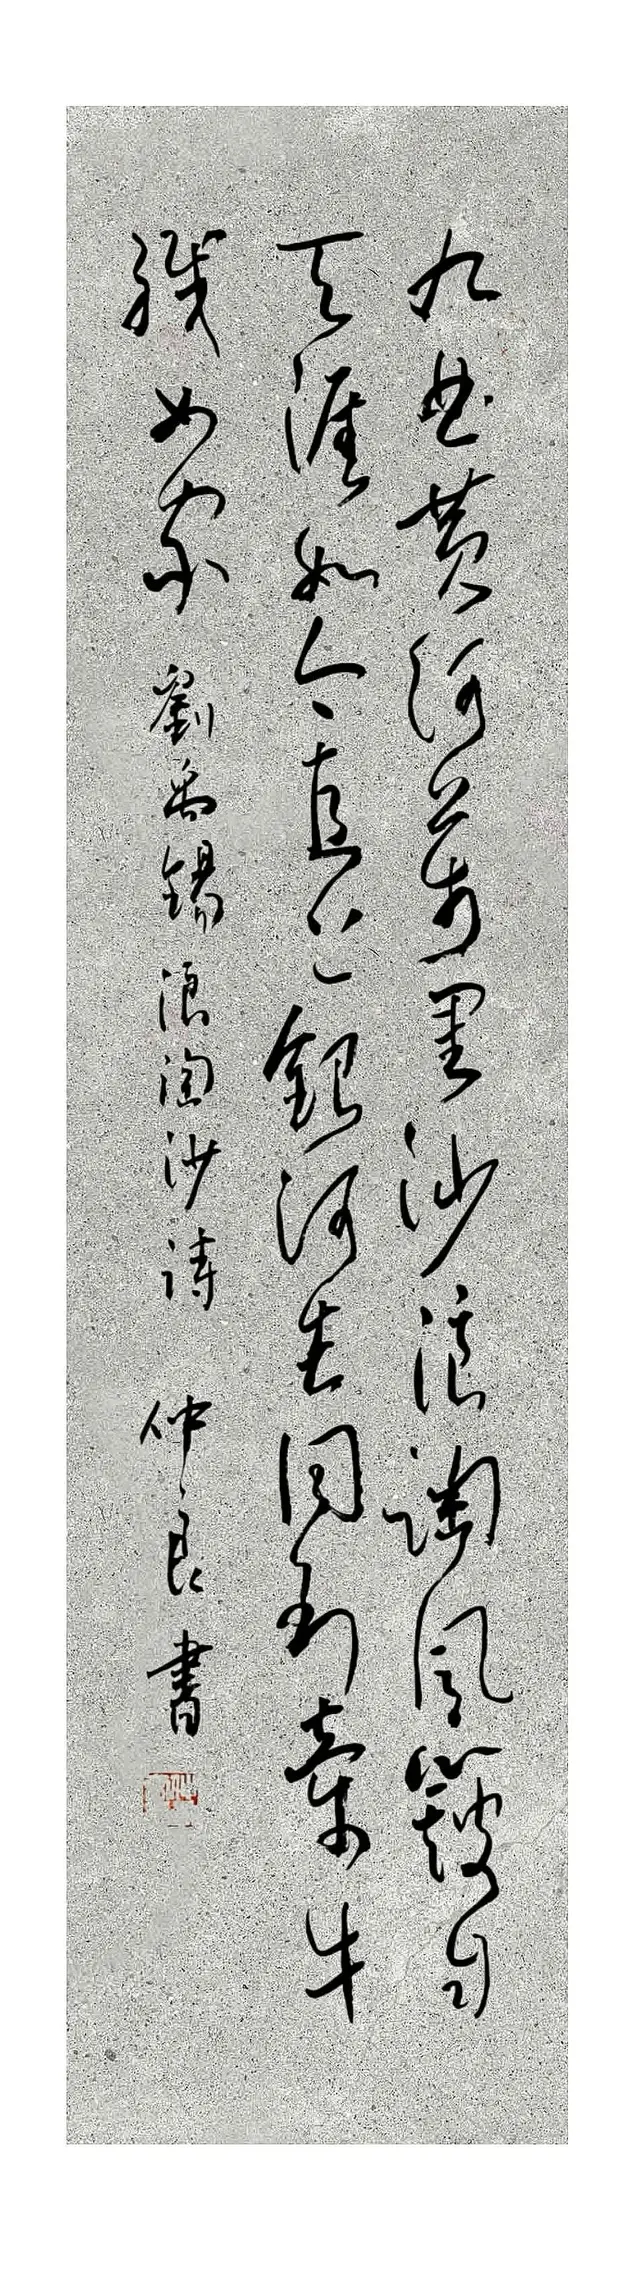 九曲黄河萬里沙浪淘風簸自
天涯如今直上銀河去同到牽牛
織女家 劉禹錫浪淘沙詩 仲良書